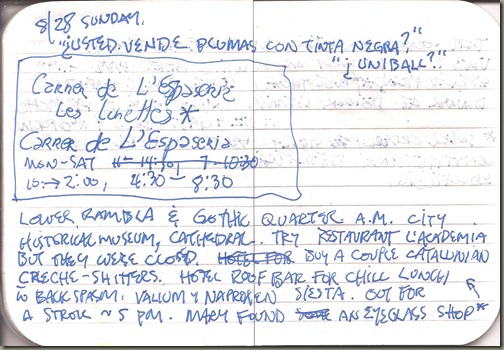 8/28 SUNDAY.
"¿USTED VENDE PLUMAS CON TINTA NEGRA?"
"¿UNIBALL?"
Carrer de L'Espaseria
Les Lunettes *
Carrer de L'Espaseria
MON-SAT 11-14:30 | 7-10:30
10:→2:00, 4:30 - 8:30
LOWER RAMBLA & GOTHIC QUARTER A.M. CITY
HISTORICAL MUSEUM, CATHEDRAL. TRY RESTAURANT L'ACADEMIA
BUT THEY WERE CLOSED. HOTEL FOR BUY A COUPLE CATALUNIAN
CRECHE-SHITTERS. HOTEL ROOF BAR FOR CHILL LUNCH
W BACK SPASM. VALIUM Y NAPROXEN SIESTA. OUT FOR
A STROLL ~ 5 PM. MARY FOUND AN EYEGLASS SHOP*